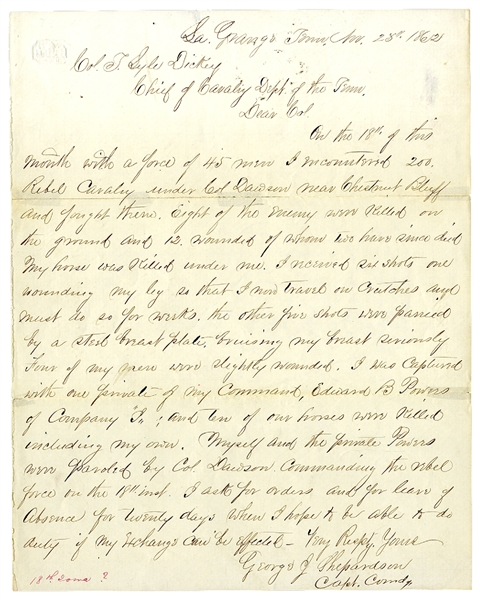 La Grange Tenn, Nov. 28th 1862
Col T. Lyle Dickey
Chief of Cavalry Dept. of the Tenn.
Dear Col.
On the 18th of this
month with a force of 45 men I incountered 200.
Rebel Cavalry under Col Dawson near Chestnut Bluff
and fought them. Eight of the enemy were Killed on
the ground and 12 wounded of whom two have since died
My horse was Killed under me. I received six shots one
wounding my leg so that I now travel on Crutches and
must do so for weeks, the other five shots were parried
by a steel breast plate, bruising my breast seriously
Four of my men were slightly wounded. I was Captured
with one private of my Command, Edward B Powers
of Company ; and ten of our horses were Killed
including my own. Myself and the private Powers
were paroled by Col. Dawson Commanding the rebel
force on the 18th inst. I ask for orders, and for leave of
Absence for twenty days when I hope to be able to do
duty if my Exchange Can be effected - Very Respty. Yours
George J Shepardson
Capt. Comdg.
18th Iowa ?